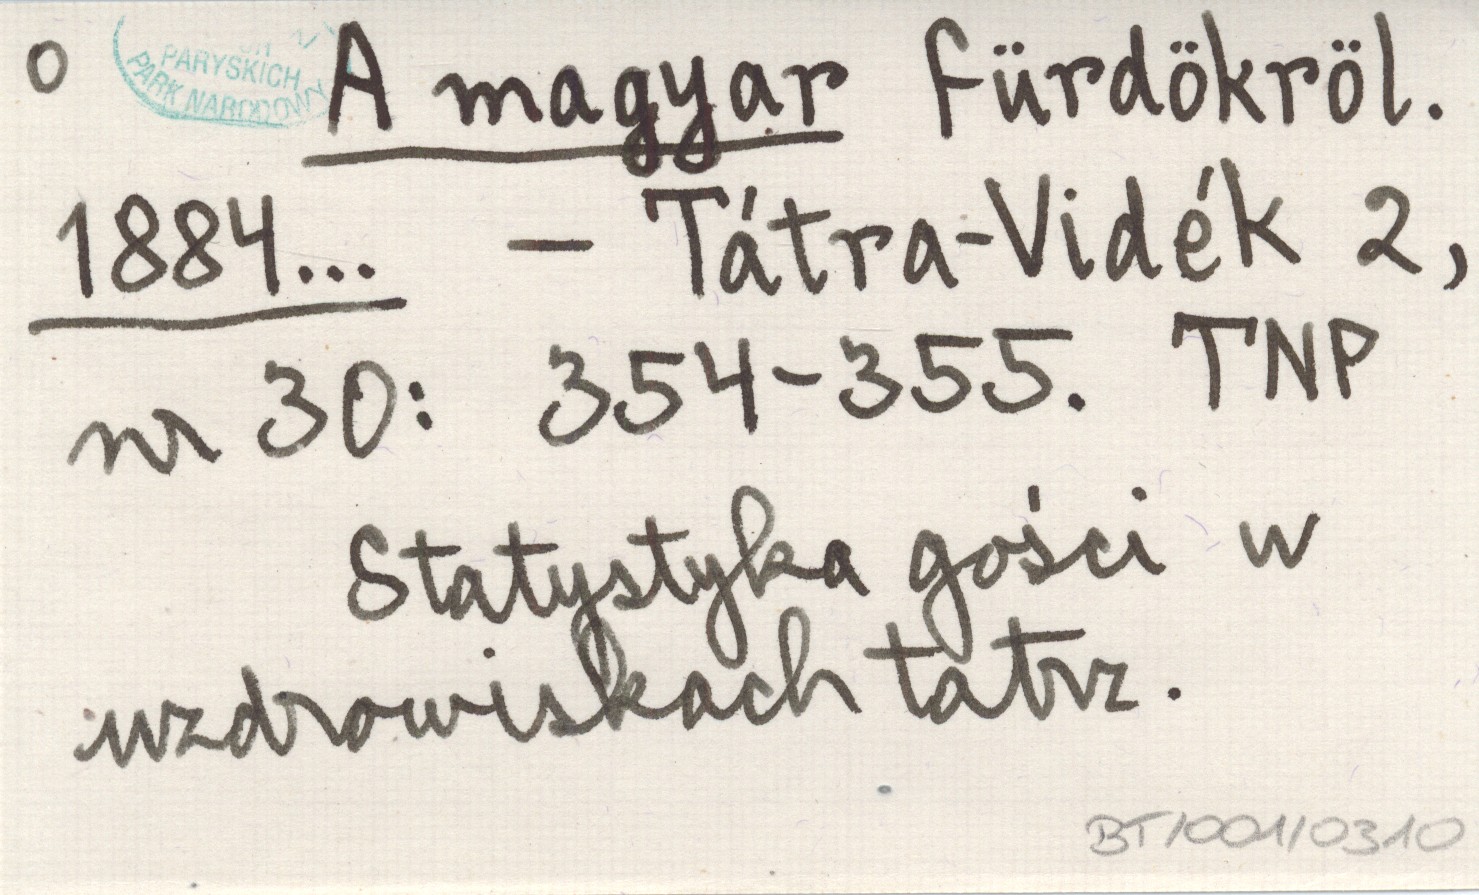 o A magyar fürdökröl.
PARYSKICH
PARK NARODOWY
1884... - Tátra-Vidék 2,
nr 30: 354-355. TNP
Statystyka gości w
uzdrowiskach tatrz.
BT/001/0310